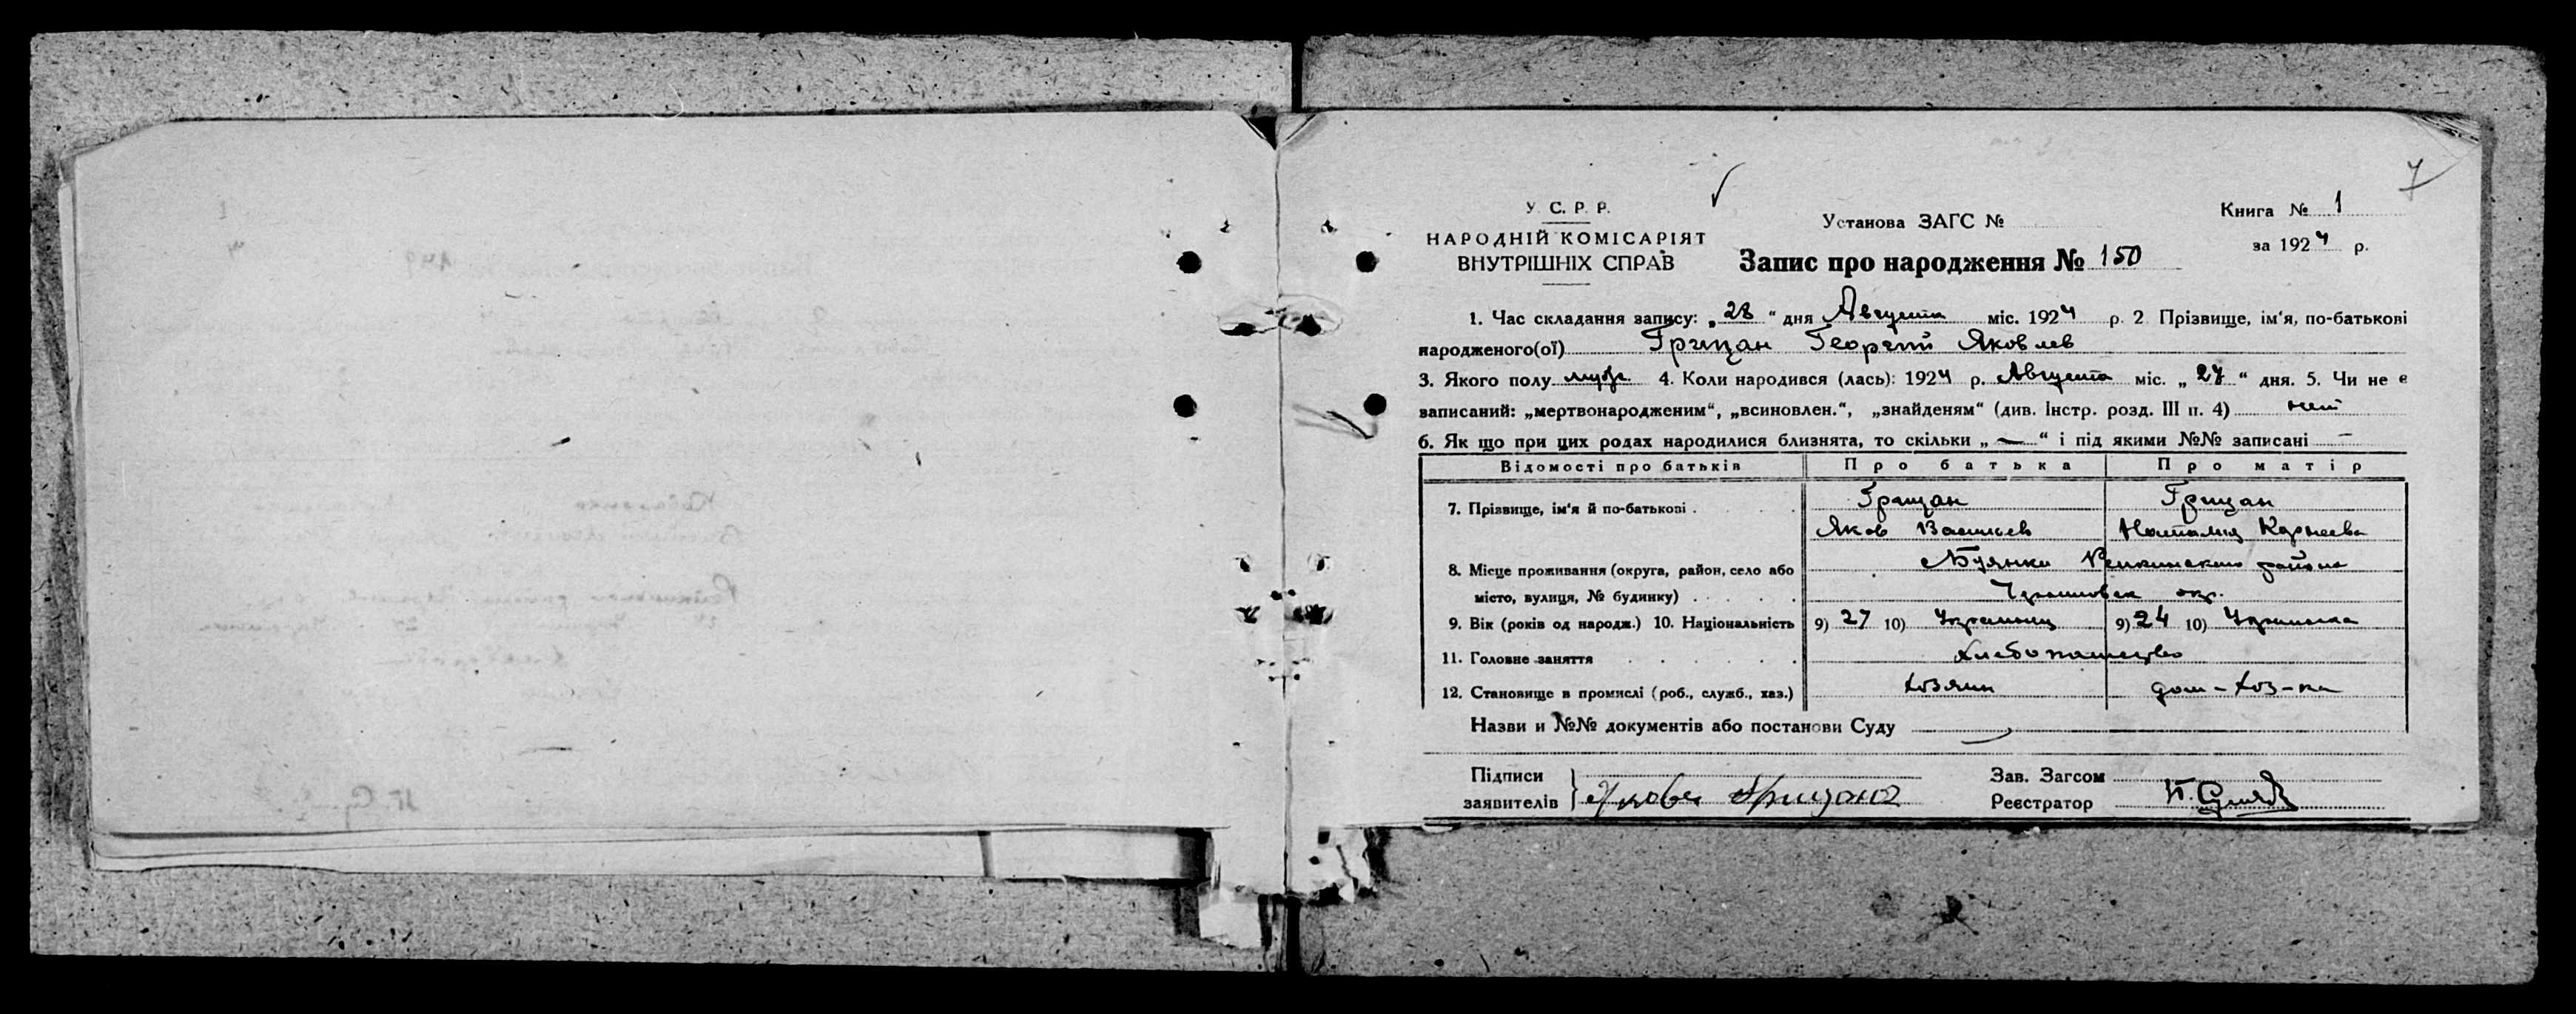 7
У. С. Р. Р.
НАРОДНІЙ КОМІСАРІЯТ
ВНУТРІШНІХ СПРАВ
Установа ЗАГС №
Книга № 1
за 1924 р.
Запис про народження № 150
1. Час складання запису: „28“ дня Августа міс. 1924 р. 2 Прізвище, ім'я, по-батькові
народженого(ої) Грицан Георгій Яковлев
3. Якого полу муж. 4. Коли народився (лась): 1924 р. Августа міс. „27“ дня. 5. Чи не є
записаний: „мертвонародженим“, „всиновлен.“, „знайденям“ (див. Інстр. розд. III п. 4) нет
6. Як що при цих родах народилися близнята, то скільки „—“ і під якими №№ записані —
Відомості про батьків Про батька Про матір
7. Прізвище, ім'я й по-батькові Грицан Грицан
Яков Васильев Наталия Корнеева
8. Місце проживання (округа, район, село або Буянки Репкинского района
місто, вулиця, № будинку) окр.
9. Вік (років од народж.) 10. Національність 9) 27 10) Украинец 9) 24 10) Украинка
11. Головне заняття Хлебопашество
12. Становище в промислі (роб., служб., хаз.) хозяин дом-хоз-ка
Назви и №№ документів або постанови Суду
Підписи Зав. Загсом
заявителів Грицана Реєстратор